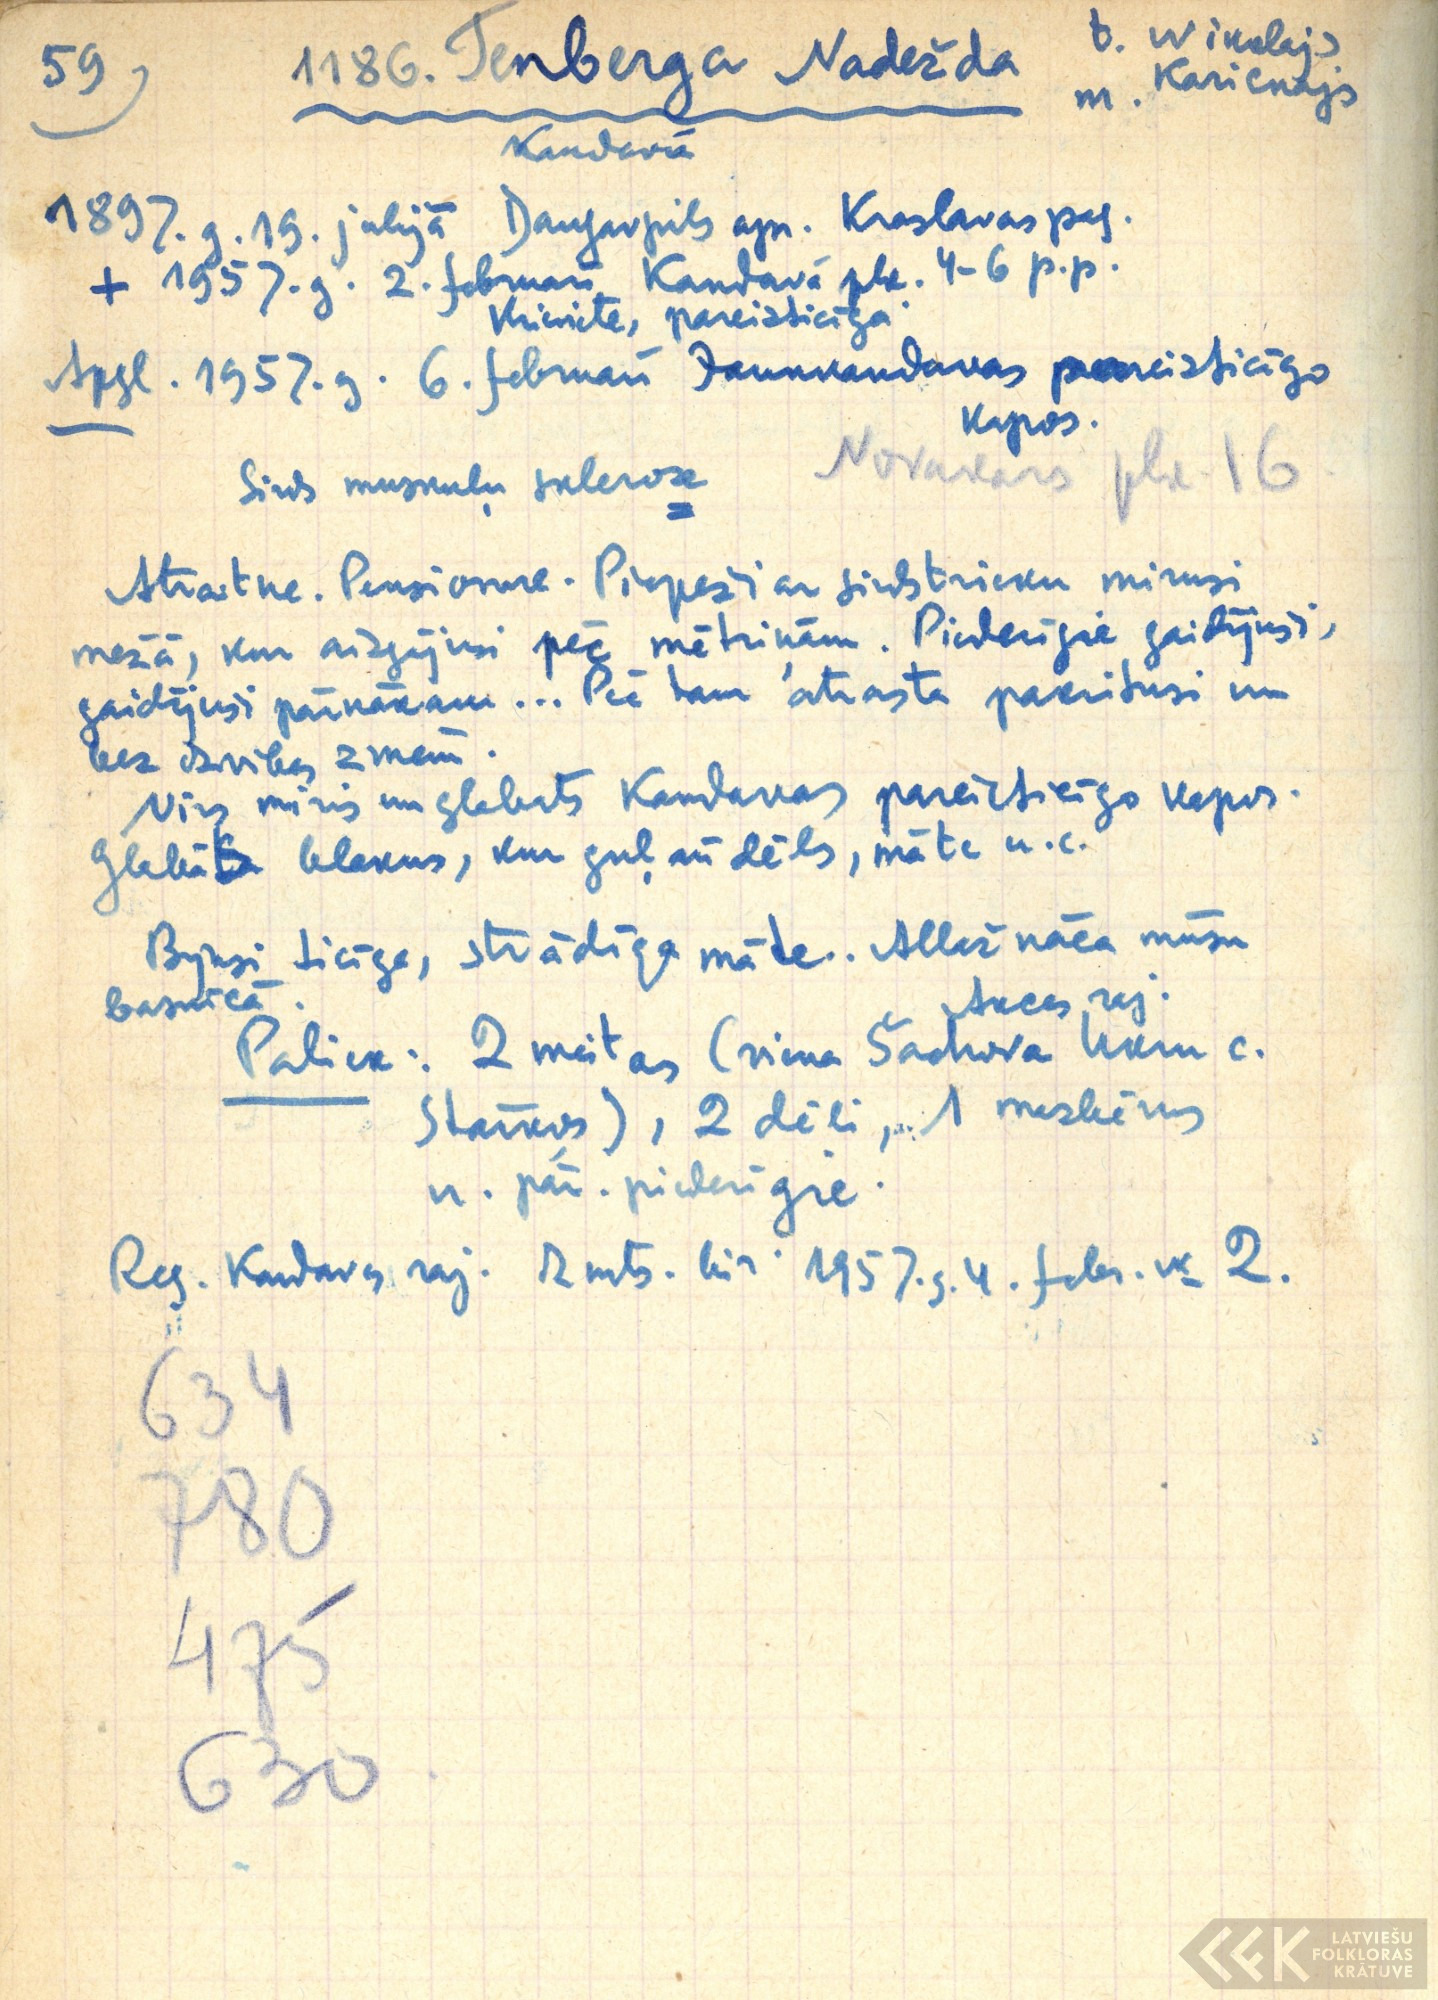 59)
1186. Tenberga Nadežda
t. Nikolajs
m.
Kandavā
1897. g. 19. julijā Daugavpils apr. Kraslavas pag.
+ 1957. g. 2. februarī Kandavā plx. 4-6 p.p.
Krieviete, pareizticīga
Apgl. 1957. g. 6. februarī Jaunkandavas pareizticīgo
kapos.
Sirds muskuļu skleroze
Novakars plx. 16
Atraitne. Pensionare. Piepeži ar sirdstrieku mirusi
mežā, kur aizgājusi pēc mētriņām. Piederīgie gaidījuši,
gaidījuši pārnākam... Pēc tam atrasta pakritusi un
bez dzivibas zīmēm.
Vīrs miris un glabāts Kandavas pareizticīgo kapos.
Glabāta blakus, kur guļ arī dēls, māte u.c.
Bijusi ticīga, strādīga māte.. Allaž nāca mūsu
basnīcā.
Auces raj.
Paliek: 2 meitas (viena Šadrova Ukru c.
), 2 dēli, 1 mazbērns
u. pār. piederīgie.
Reg. Kandavas raj. Dzmts. bir. 1957. g. 4. febr. № 2.
634
780
475
630
LATVIEŠU
FOLKLORAS
KRĀTUVE